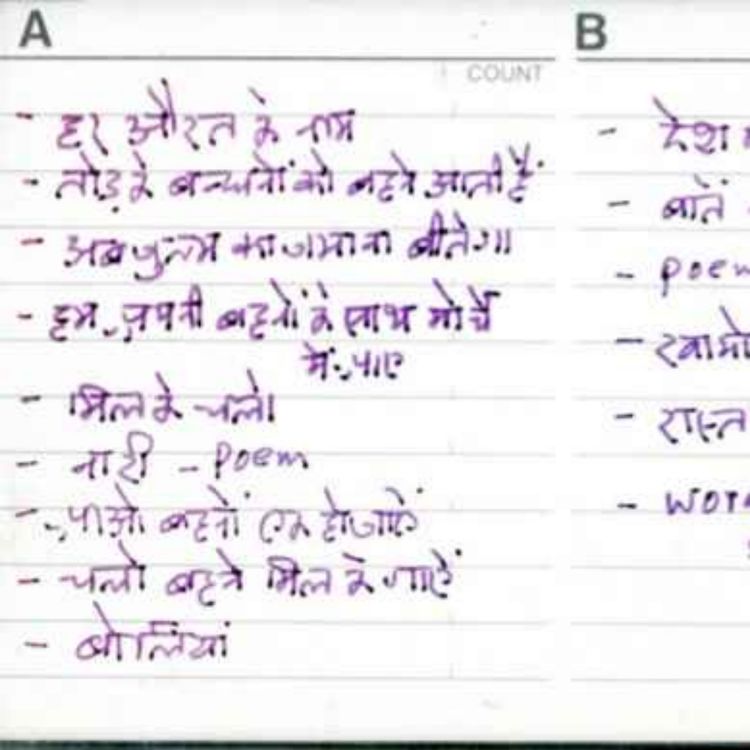 A
COUNT
- हर औरत के नाम
- तोड़ के बन्धनों को बहने आती हैं
- अब जुल्म का जमाना बीतेगा
- हम अपनी बहनों के साथ मोर्चे
में आए
- मिल के चलो
- नारी - poem
- आओ बहनों एक हो जाएँ
- चलो बहने मिल के गाएं
- बोलियां
B
- देश
- बातें
- poem
-
- रास्त
-